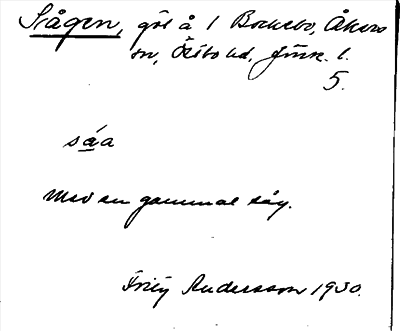 Sågen, göl å 1 Bockebo, Åkers
sn, Östbo hd, Jönk. l.
5.
såa
Med en gammal såg.
Frity Andersson 1930.